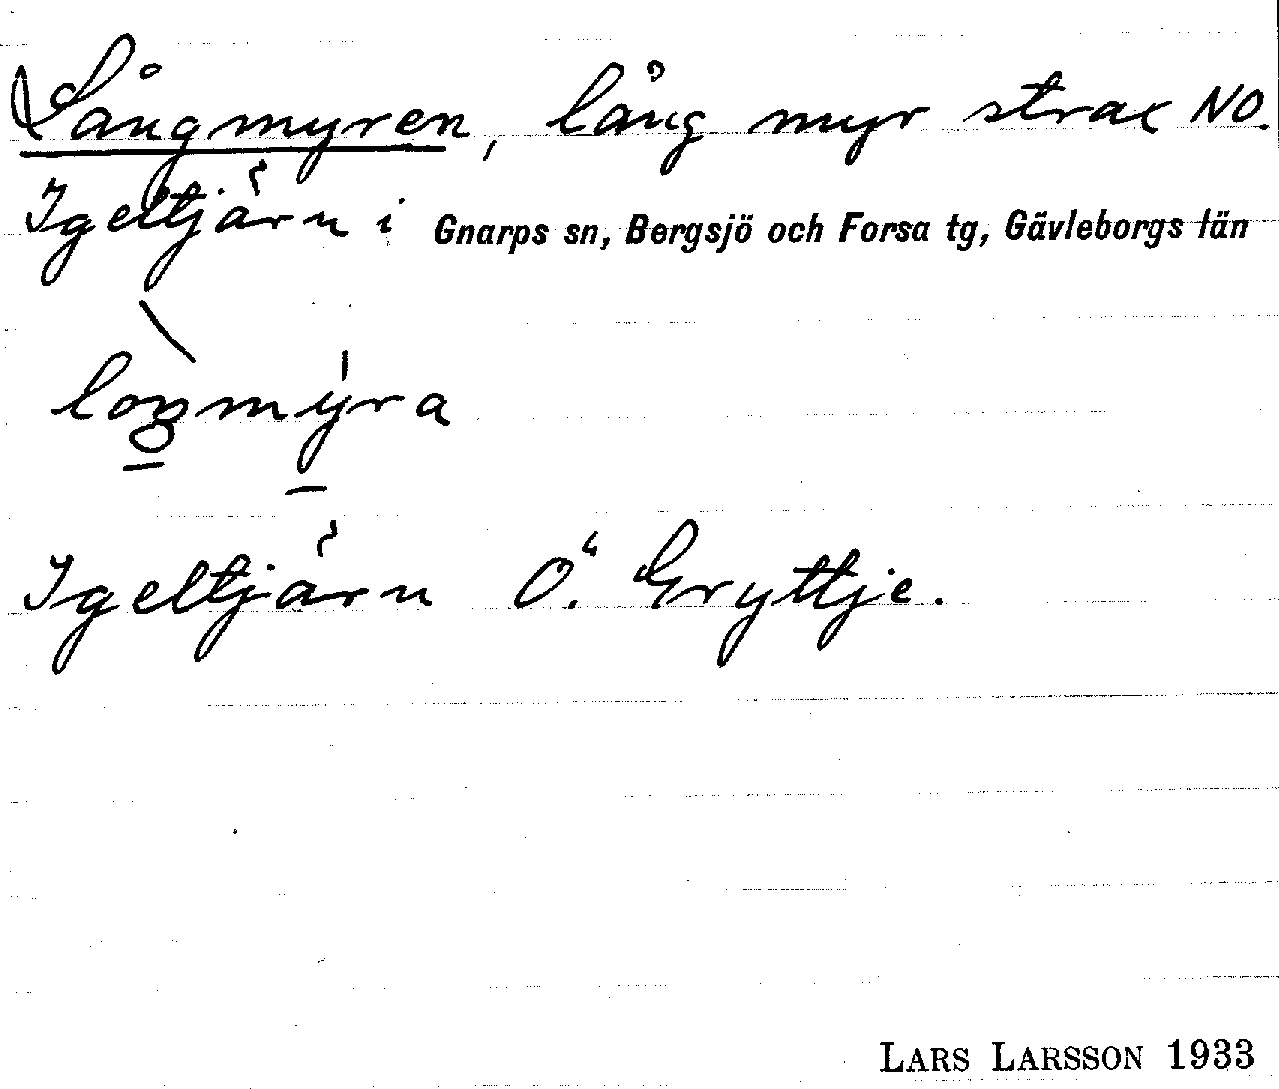 Långmyren, lång myr strax NO.
Igeltjärn i Gnarps sn, Bergsjö och Forsa tg, Gävleborgs län
loŋmyra
Igeltjärn Ö. Gryttje.
LARS LARSSON 1933